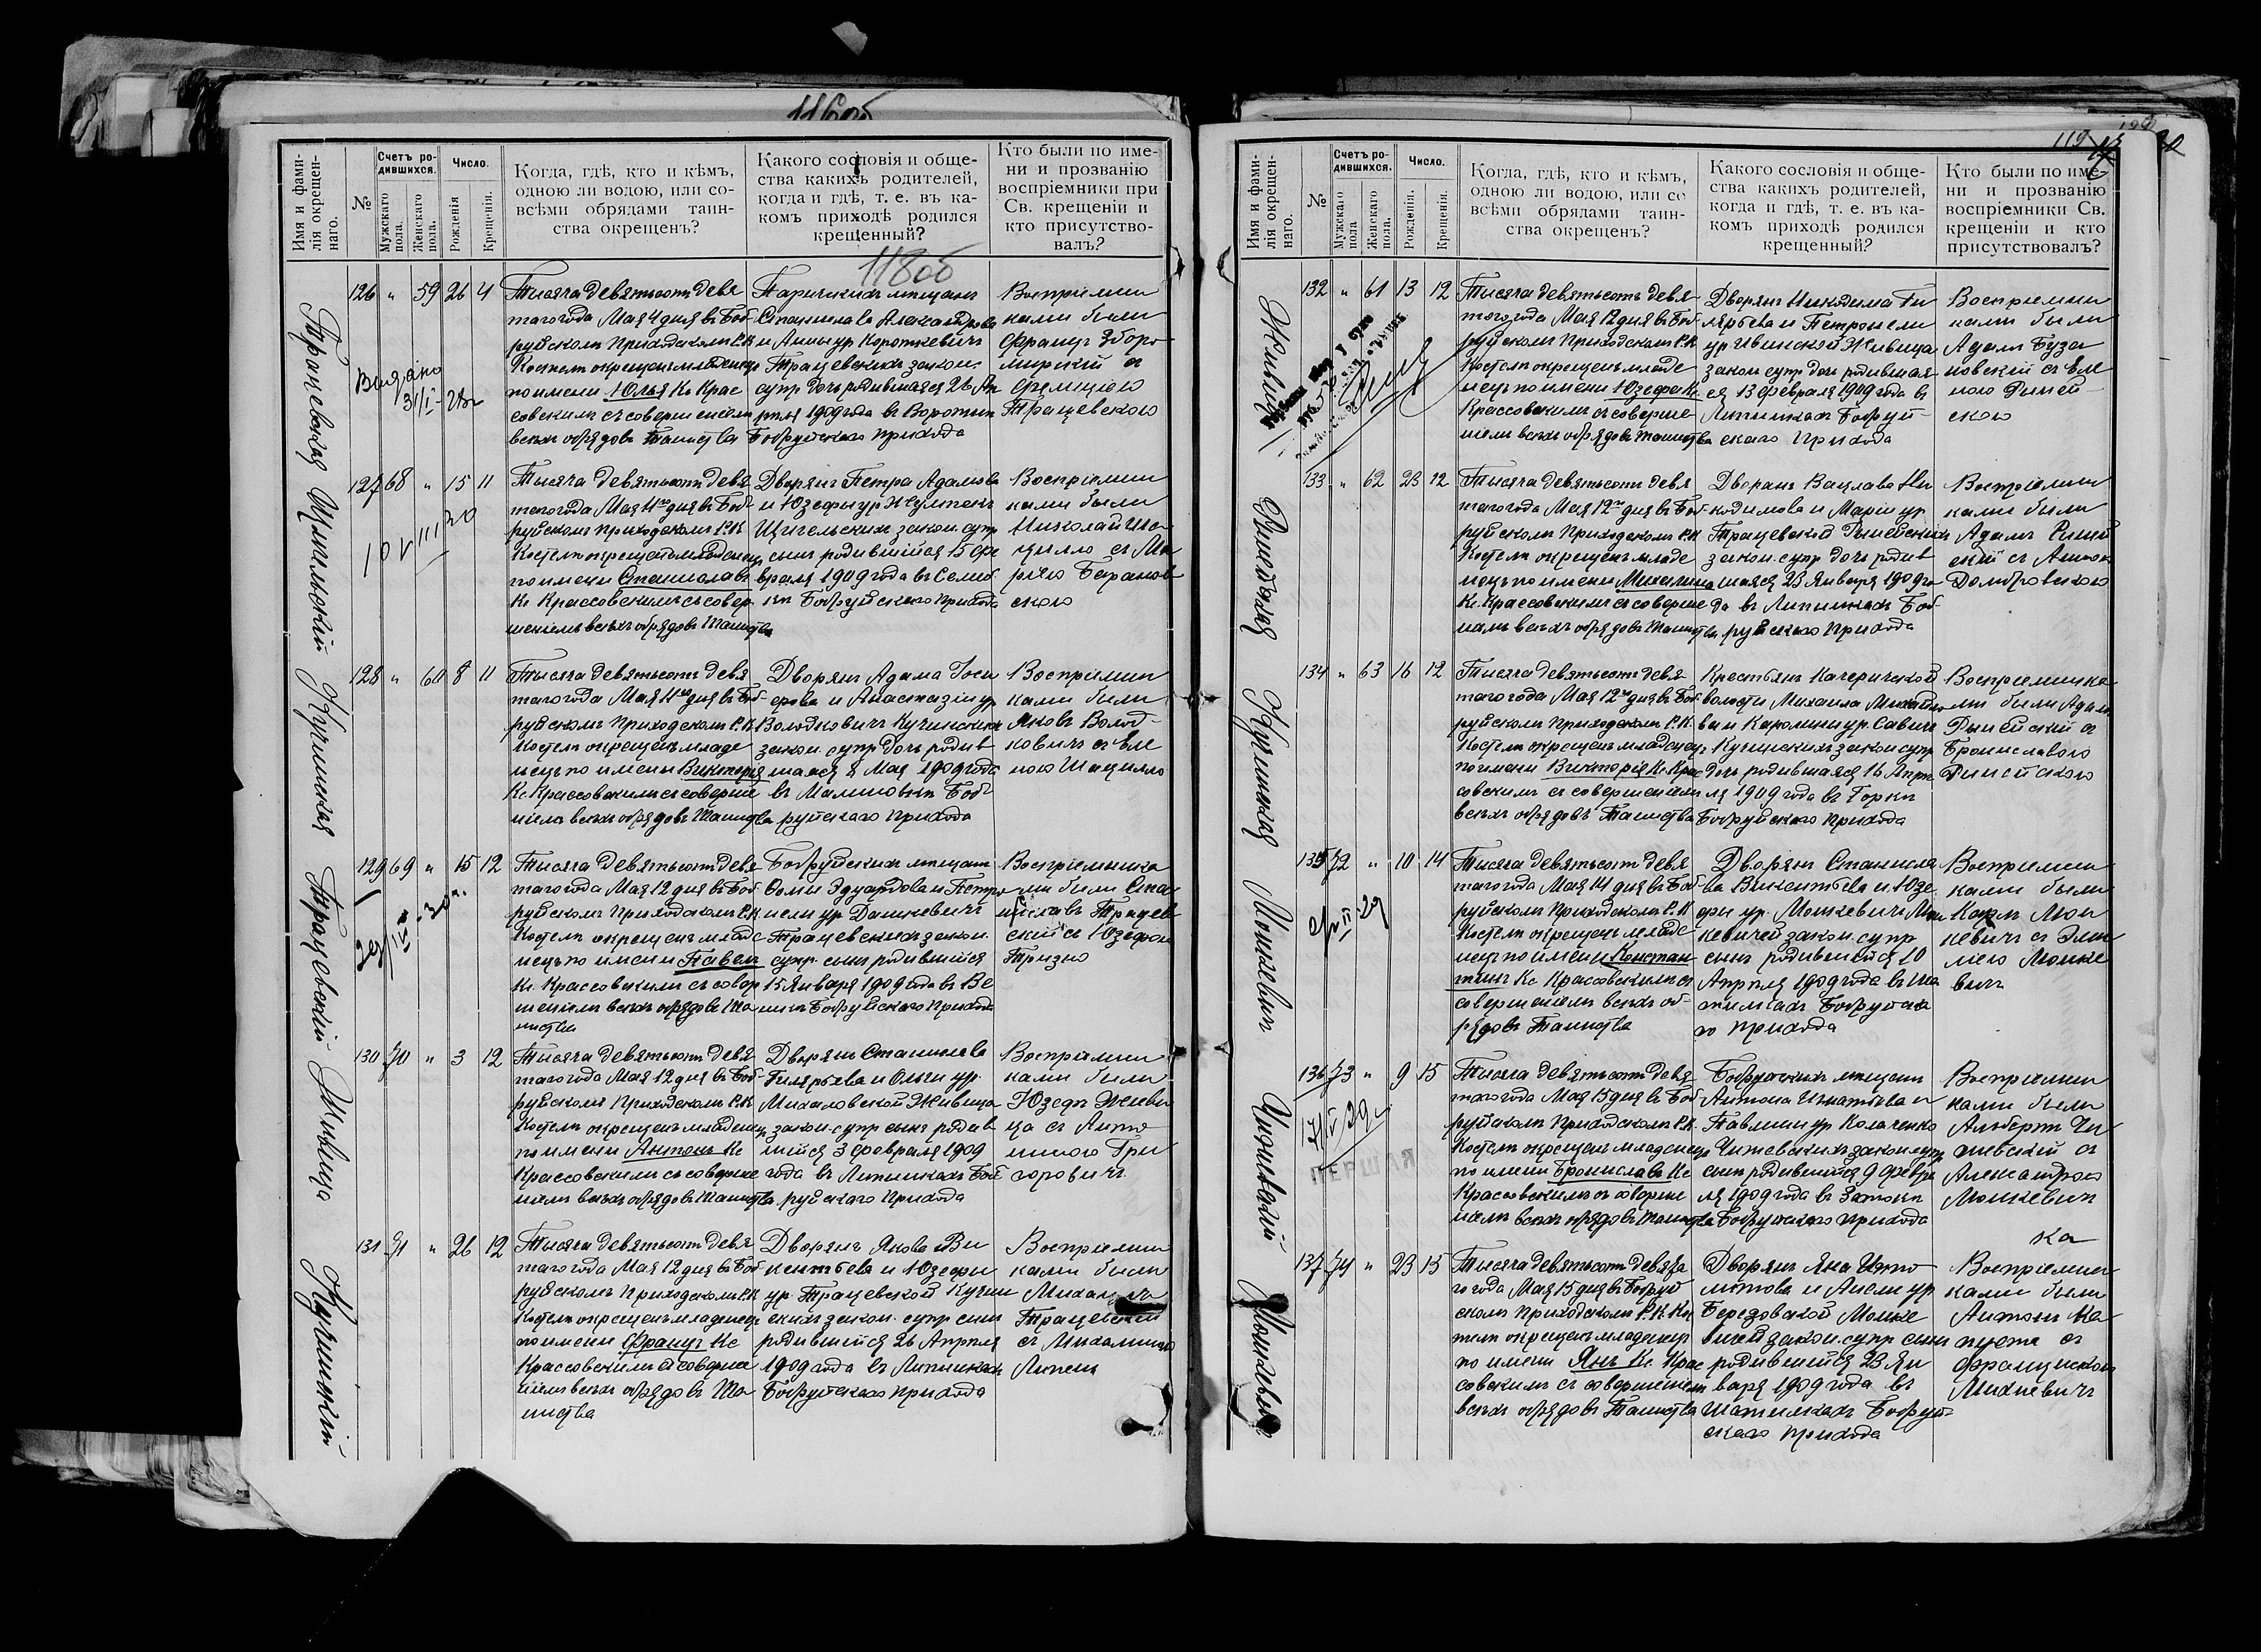 118об
Имя и фами-
лія окрещен-
наго.
№
Счетъ ро-
дившихся.
Мужскаго
пола.
Женскаго
пола.
Число.
Рожденія
Крещенія.
Когда, гдѣ, кто и кѣмъ,
одною ли водою, или со-
всѣми обрядами таин-
ства окрещенъ?
Какого сословія и обще-
ства какихъ родителей,
когда и гдѣ, т. е. въ ка-
комъ приходѣ родился
крещенный?
Кто были по име-
ни и прозванію
воспріемники при
Св. крещеніи и
кто присутство-
валъ?
126 " 59 26 4
Тысяча девятьсотъ девя
таго года Мая 4 дня въ Боб-
руйскомъ Приходскомъ Р.К
Костелѣ окрещенъ младенецъ
по имени Юлья Кс Крас
совскимъ съ совершеніемъ
всѣхъ обрядовъ Таинства
Паричскихъ мѣщанъ
Станислава Александрова
и Анны ур Короткевичъ
Трацевскихъ закон.
супр дочь родившаяся 26 Ап
рѣля 1909 года въ
Бобруйскаго прихода
Воспріемни
ками были
Францъ Зборо
мирскій съ
Фелицією
Трацевскою
127 68 " 15 11
Тысяча девятьсотъ девя
таго года Мая 11го дня въ Боб-
руйскомъ Приходскомъ Р.К
Костелѣ окрещенъ младенецъ
по имени Станиславъ
Кс Крассовскимъ съ совер
шеніемъ всѣхъ обрядовъ Таинства
Дворянъ Петра Адамова
и Юзефы ур
закон. супр
сынъ родившійся 15 фе
враля 1909 года въ
Бобруйскаго прихода
Воспріемни
ками были
Николай
съ Ма
ріею Баранов
скою
128 " 60 8 11
Тысяча девятьсотъ девя
таго года Мая 11го дня въ Боб-
руйскомъ Приходскомъ Р.К
Костелѣ окрещенъ младе
нецъ по имени Викторія
Кс. Крассовскимъ съ соверше
ніемъ всѣхъ обрядовъ Таинства
Дворянъ Адама Госи
фова и Анастазіи ур
Володковичъ Кучинскихъ
закон. супр дочь родив
шаяся 8 Мая 1909 года
въ Малиновкѣ Боб-
руйскаго прихода
Воспріемни
ками были
Яковъ Волод-
ковичъ съ Еле
ною Шацилло
129 69 " 15 12
Тысяча девятьсотъ девя
таго года Мая 12 дня въ Боб
руйскомъ Приходскомъ Р.К
Костелѣ окрещенъ младе
нецъ по имени Павелъ
Кс. Крассовскимъ съ совер
шеніемъ всѣхъ обрядовъ Та
инства
Бобруйскихъ мѣщанъ
Ѳомы Эдуардова и Петро
нели ур Дашкевичъ
Трацевскихъ закон.
супр. сынъ родившійся
15 Января 1909 года въ
Бобруйскаго прихода
Воспріемника
ми были Ста
ниславъ Трацев
скій съ Юзефою
Тризно
130 70 " 3 12
Тысяча девятьсотъ девя
таго года Мая 12 дня въ Боб-
руйскомъ Приходскомъ Р.К
Костелѣ окрещенъ младенецъ
по имени Антонъ Кс
Крассовскимъ съ соверше
ніемъ всѣхъ обрядовъ Таинства
Дворянъ Станислава
Гилярьева и Ольги ур.
Михаловской Живица
закон. супр сынъ родив
шійся 3 февраля 1909
года въ Липникахъ Боб
руйскаго прихода
Воспріемни
ками были
Юзефъ Живи
ца съ Анто
ниною Гри
горовичъ.
131 71 " 26 12
Тысяча девятьсотъ девя
таго года Мая 12 дня въ Боб
руйскомъ Приходскомъ Р.К
Костелѣ окрещенъ младенецъ
по имени Францъ Кс
Крассовскимъ съ соверше
ніемъ всѣхъ обрядовъ Та
инства
Дворянъ Якова Ви
кентьева и Юзефы
ур. Трацевской Кучин
скихъ закон. супр сынъ
родившійся 26 Апрѣля
1909 года въ Липникахъ
Бобруйскаго прихода
Воспріемни
ками были
Михаилъ
Трацевскій
съ Михалиною
Липень
119
Имя и фами-
лія окрещен-
наго.
№
Счетъ ро-
дившихся.
Мужскаго
пола
Женскаго
пола.
Число.
Рожденія.
Крещенія.
Когда, гдѣ, кто и кѣмъ,
одною ли водою, или со
всѣми обрядами таин-
ства окрещенъ?
Какого сословія и обще-
ства какихъ родителей,
когда и гдѣ, т. е. въ ка-
комъ приходѣ родился
крещенный?
Кто были по име-
ни и прозванію
воспріемники Св.
крещеніи и кто
присутствовалъ?
132 " 61 13 12
Тысяча девятьсотъ девя-
таго года Мая 12 дня въ Боб-
руйскомъ Приходскомъ Р.К
Костелѣ окрещенъ младе
нецъ по имени Юзефа Кс
Крассовскимъ съ соверше
ніемъ всѣхъ обрядовъ Таинства
Дворянъ Никодима Ги
лярьева и Петронели
ур Ивинской Живица
закон супр дочь родившая
ся 13 февраля 1909 года въ
Липникахъ Бобруй-
скаго прихода
Воспріемни
ками были
Адамъ Буза
новскій съ Еле
ною Рыней
скою
133 " 62 23 12
Тысяча девятьсотъ девя
таго года Мая 12го дня въ Боб
руйскомъ Приходскомъ Р.К
Костелѣ окрещенъ младе
нецъ по имени Михалина
Кс. Крассовскимъ съ соверше
ніемъ всѣхъ обрядовъ Таинства
Дворянъ Вацлава Ни
кодимова и Маріи ур
Трацевской Рынейскихъ
закон. супр дочь родив
шаяся 23 Января 1909 го
да въ Липникахъ Боб-
руйскаго прихода
Воспріемни
ками были
Адамъ Рыней
скій съ Антон
Домбровскою
134 " 63 16 12
Тысяча девятьсотъ девя
таго года Мая 12го дня въ Боб
руйскомъ Приходскомъ Р.К.
Костелѣ окрещенъ младенецъ
по имени Викторія Кс. Крас
совскимъ съ совершеніемъ
всѣхъ обрядовъ Таинства
Крестьянъ Качеричской
волости Михаила Михайло
ва и Каролины ур. Савичъ
Кучинскихъ закон супр
дочь родившаяся 16 Апрѣ
ля 1909 года въ Горки
Бобруйскаго прихода
Воспріемника
ми были Адамъ
Рынейскій съ
Брониславою
Рынейскою
135 72 " 10 14
Тысяча девятьсотъ девя
таго года Мая 14 дня въ Боб
руйскомъ Приходскомъ Р.К
Костелѣ окрещенъ младе
нецъ по имени Констан
тинъ Кс Крассовскимъ съ
совершеніемъ всѣхъ об-
рядовъ Таинства
Дворянъ Станисла
ва Викентьева и Юзе
фы ур. Мошкевичъ Мош
кевичей закон. супр
сынъ родившійся 10
Апрѣля 1909 года въ Ша
тилкахъ Бобруйска
го прихода
Воспріемни
ками были
Карлъ Мош
кевичъ съ Эми
ліею Мошке
вичъ
136 73 " 9 15
Тысяча девятьсотъ девя
таго года Мая 15 дня въ Боб
руйскомъ Приходскомъ Р.К.
Костелѣ окрещенъ младенецъ
по имени Брониславъ Кс
Крассовскимъ съ соверше
ніемъ всѣхъ обрядовъ Таинства
Бобруйскихъ мѣщанъ
Антона Игнатьева и
Павлины ур Козаченко
Чижевскихъ закон супр
сынъ родившійся 9 февра
ля 1909 года въ
Бобруйскаго прихода
Воспріемни
ками были
Альбертъ Чи
жевскій съ
Александрою
Мошкевичъ
ПЕРШАЯ
137 74 " 23 15
Тысяча девятьсотъ девята
го года Мая 15 дня въ Бобруй
скомъ Приходскомъ Р.К. Кос
телѣ окрещенъ младенецъ
по имени Янъ Кс. Крас
совскимъ съ совершеніемъ
всѣхъ обрядовъ Таинства
Дворянъ Яна Иппо
литова и Анели ур
Березовской Мошке
вичей закон. супр сынъ
родившійся 23 Ян
варя 1909 года въ
Шатилкахъ Бобруй-
скаго прихода
Воспріемни
ками были
Антонъ Ка
пуста съ
Францискою
Михневичъ